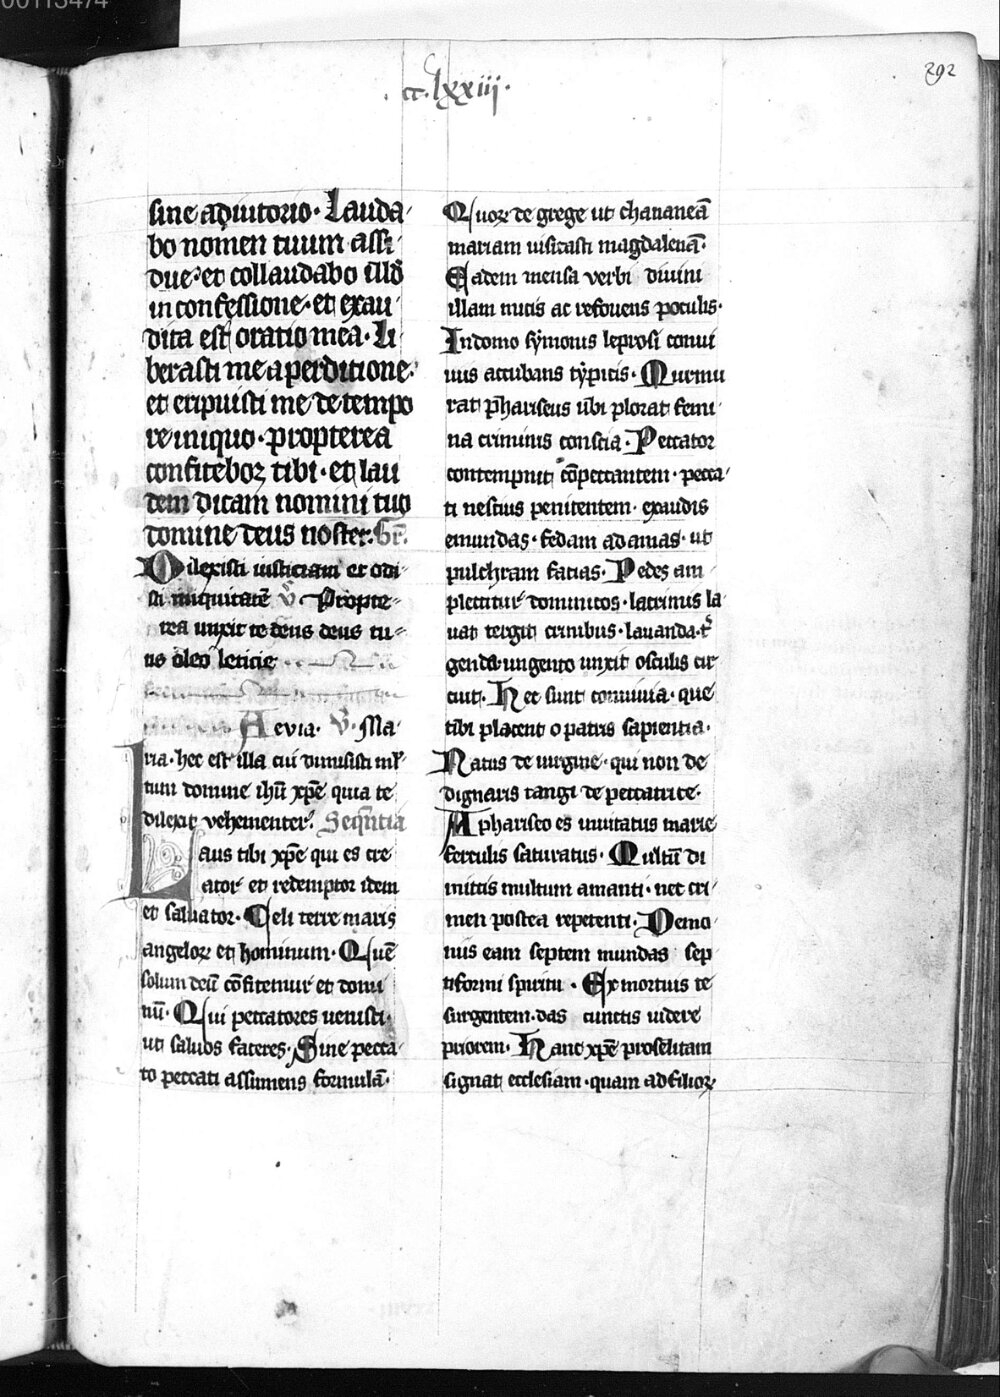 00113474
cc.lxxiii.
292
sine adiutorio. Lauda-
bo nomen tuum assi-
due et collaudabo illd̄
in confessione. et exau-
dita est oratio mea. Li-
berasti me a perditione.
et eripuisti me de tempo
re iniquo. propterea
confiteboꝝ tibi. et lau
dem dicam nomini tuo
domine deus noster. Gr̄.
Dilexisti iusticiam et odi-
sti iniquitatē ℣. Propte-
rea unxit te deus deus tu-
us oleo leticie
Aevia. ℣. Ma-
ria. hec est illa cui dimisisti ml̄-
tum domine ihū xp̄e quia te
dilexit vehementer. Seqn̄tia
Laus tibi xp̄e qui es cre
ator et redemptor idem
et saluator. Celi terre maris
angeloꝝ et hominum. Quē
solum deū cōfitemur et domi
nū. Qui peccatores uenisti.
ut saluos faceres. Sine pecca-
to peccati assumens formulā.
Quoꝝ de grege ut chananeā
mariam uisitasti magdalenā.
Eadem mensa verbi diuini
illam nutis ac refouens poculis.
In domo symonis leprosi conui
uiis accubans typicis. Murmu
rat phariseus ubi plorat femi
na criminis conscia. Peccator
contempnit cōpeccantem. pecca-
ti nescius penitentem. exaudis
emundas. fedam adamas. ut
pulchram facias. Pedes am
plectitur dominicos. lacrimis la
uat tergit crinibus. lauanda. t̄
genda. ungento unxit osculis cir
cuit. Hec sunt conuiuia. que
tibi placent o patris sapientia.
Natus de uirgine. qui non de
dignaris tangi de peccatrice.
A phariseo es inuitatus marie
ferculis saturatus. Multū di
mittis multum amanti. nec cri-
men postea repetenti. Demo
niis eam septem mundas sep
tiformi spiritu. Ex mortuis te
surgentem. das cunctis uidere
priorem. Hanc xp̄e proselitam
signat ecclesiam. quam ad filioꝝ